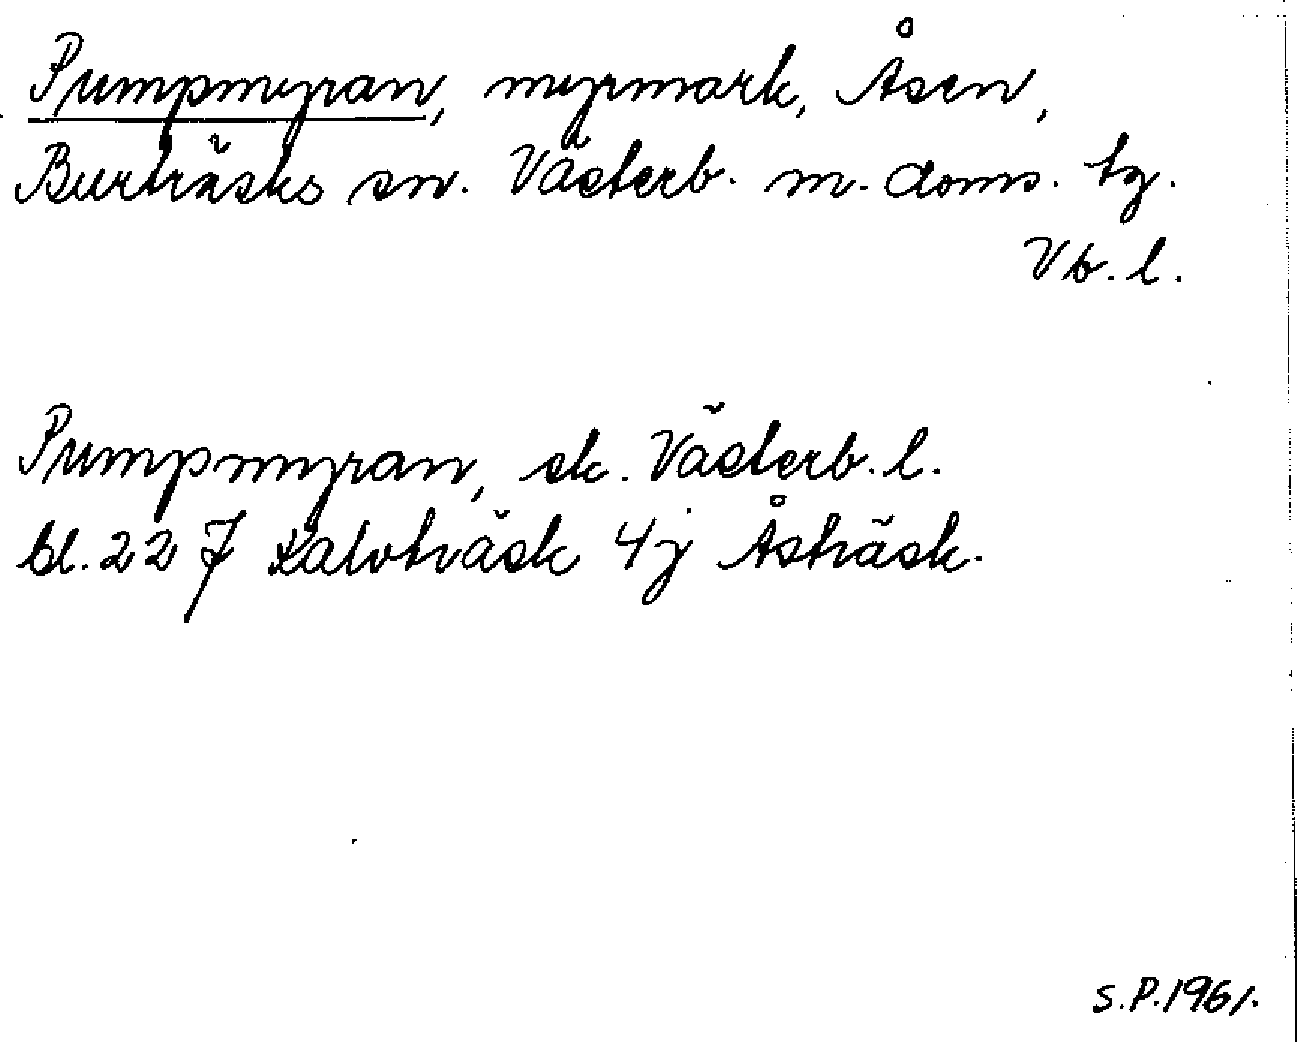 Pumpmyran, myrmark, Åsen,
Burträsks sn. Västerb. m. doms. tg.
Vb. l.
Pumpmyran, sk. Västerb. l.
bl. 22 J Kalvträsk 4j Åsträsk.
S.P. 1961.